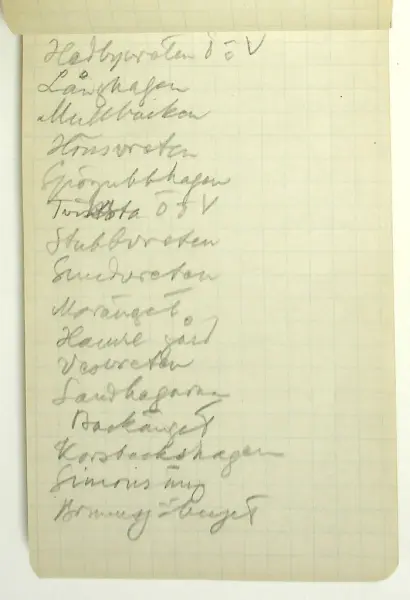 Hadbyvreten Ö ö V
Långhagen
Mullbacken
Hönsvreten
Sjögubbhagen
Tvistbta Ö ö V
Stubbvreten
Sundvreten
Moränget
Hamre gård
Vasvreten
Sandhagarna
Backänget
Korsbackshagen
Simons äng